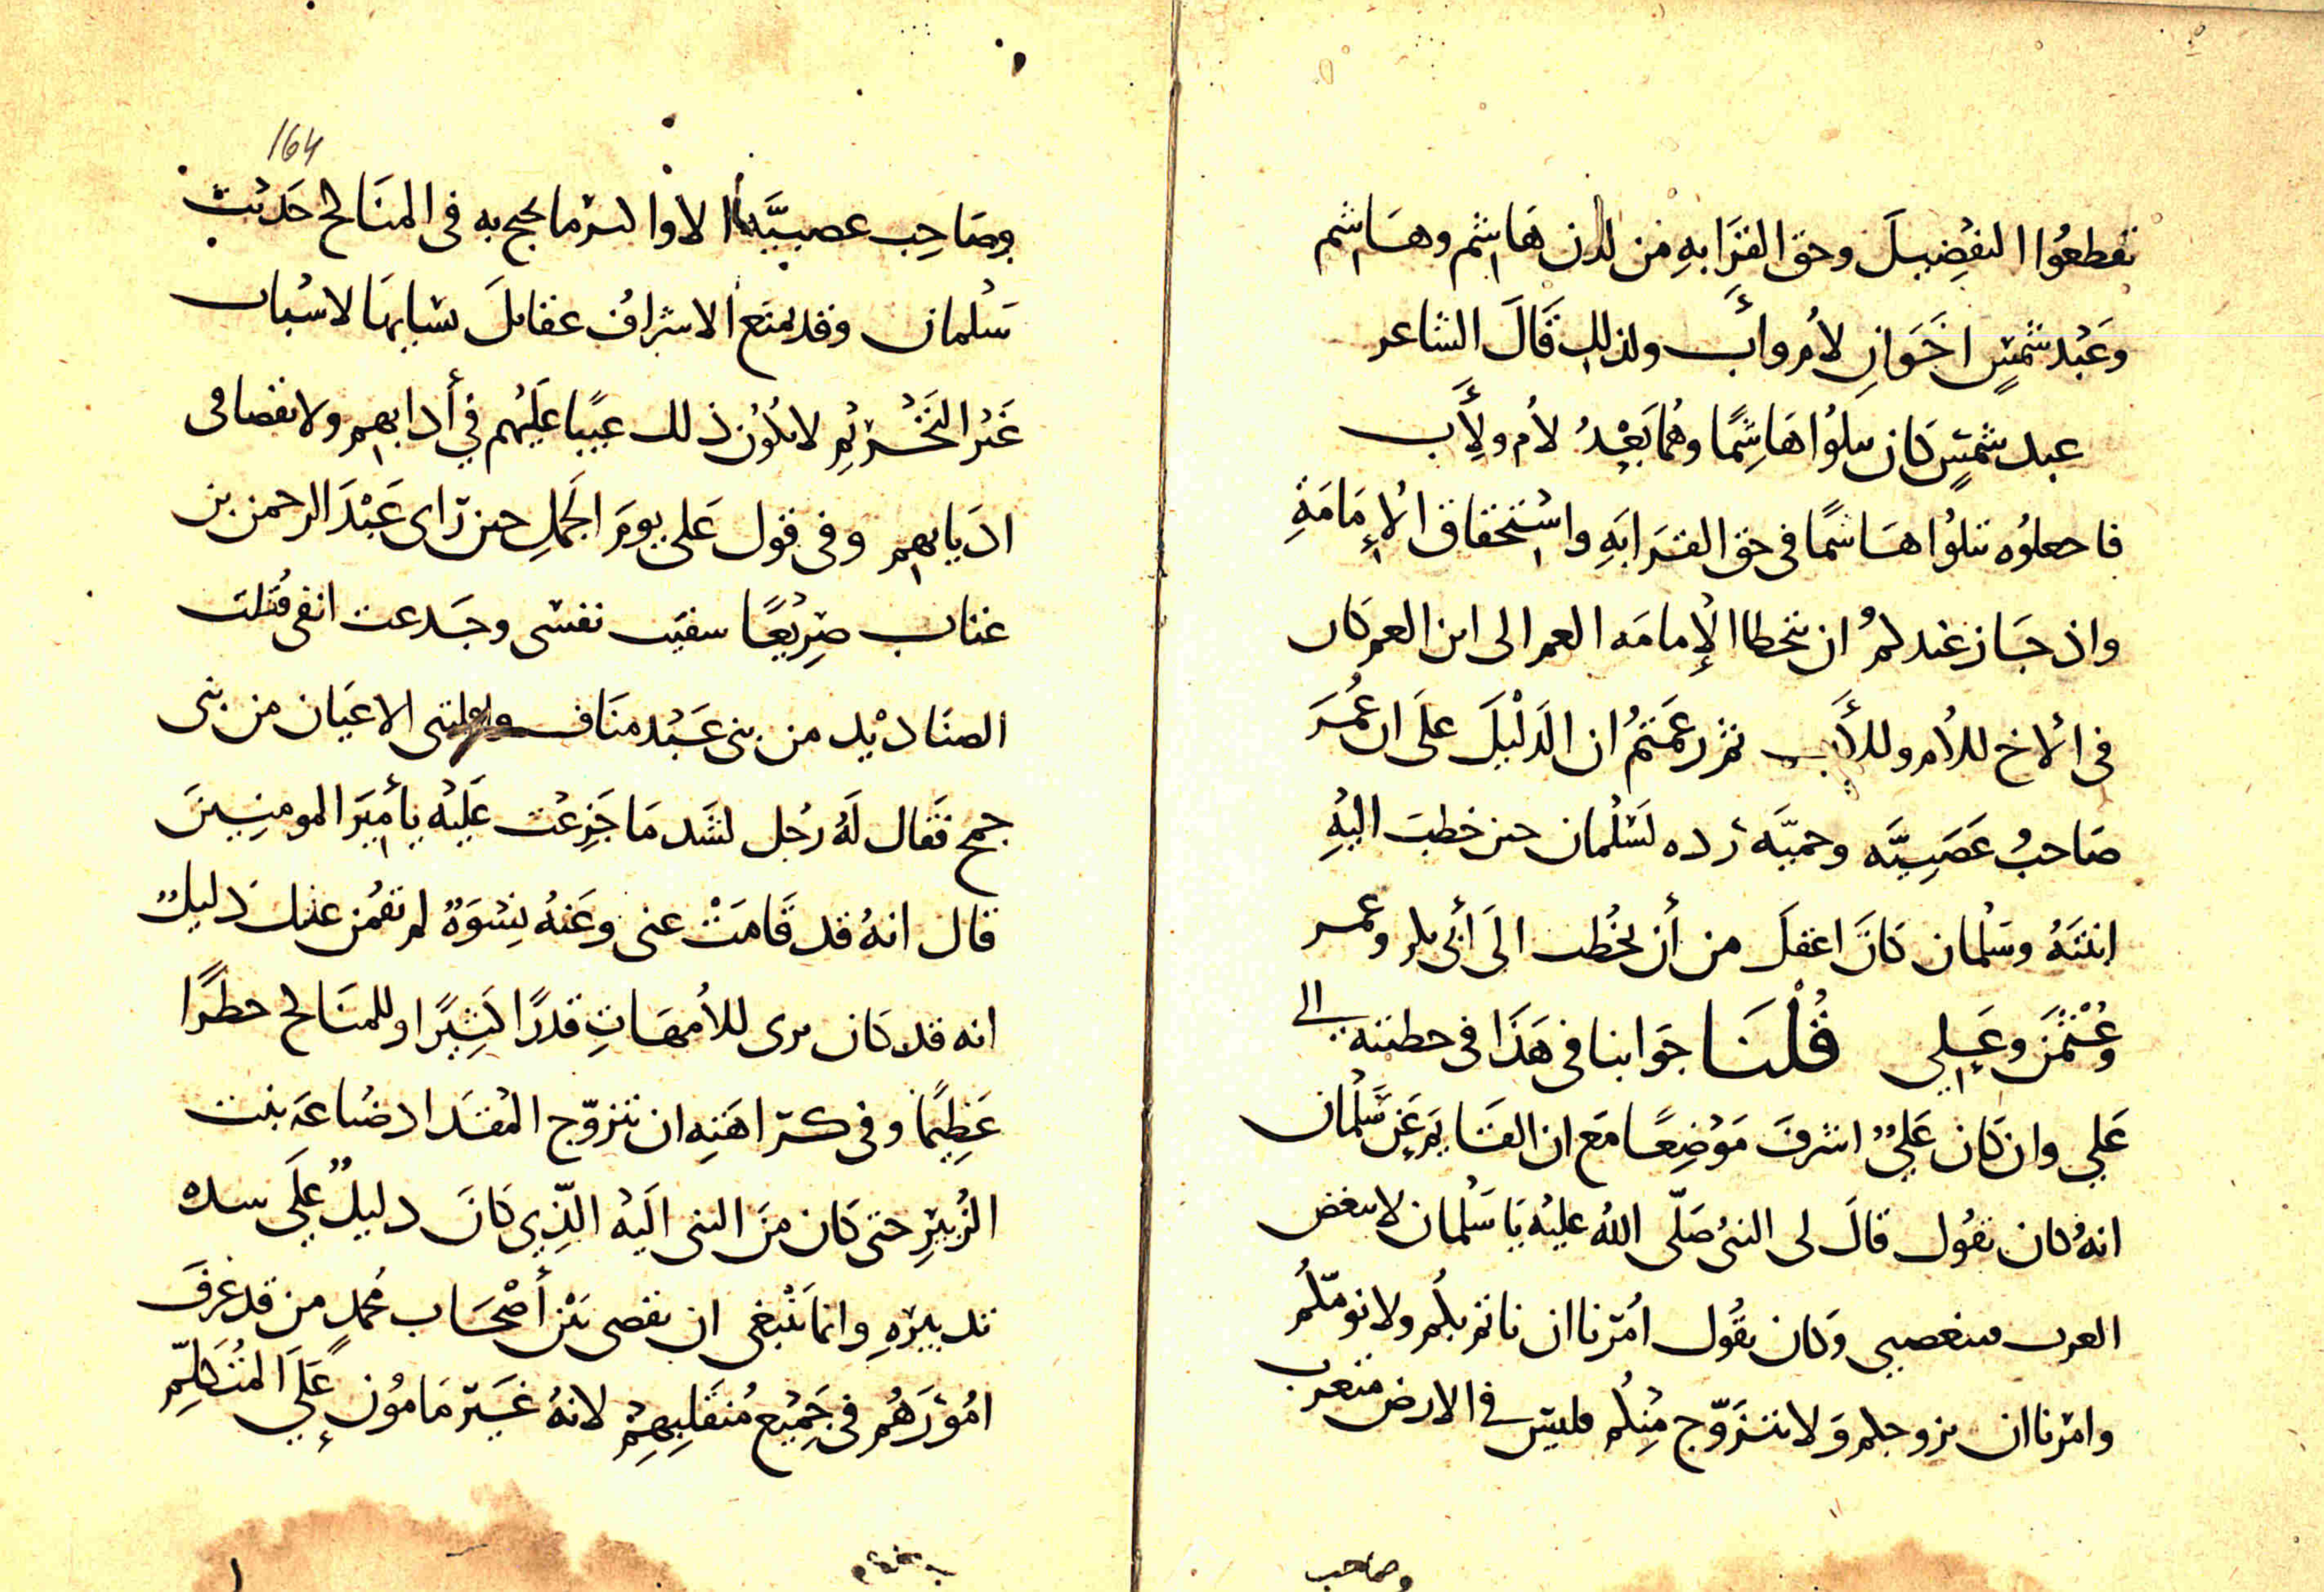 تقطعوا التفضيلَ وحق القَرَابهِ من لدن هَاشم وهَاشم
وَعَبْد شمسٍ اخَوَانِ لأم وأب ولذلك قَالَ الشاعر
عبد شمسٍ كان يتلُوا هَاشِمًا وهُما بَعْدُ لأم ولأب
فاجعلوُه يتلُوا هَاشمًا في حق القَرَابَهِ واسْتحقاق الإمَامَةِ
واذ جَاز عندكم ان يتخطا الإمامَه العم الى ابن العم كان
في الاخ للأم وللأب ثم زعمَتمُ ان الدَليْلَ علَى ان عُمَرَ
صَاحبُ عَصَبِيَّه وحميَّه رَده لسَلْمان حين خطبَ اليْهِ
ابنتَهُ وسَلْمان كانَ اعقلَ من أن يخْطب الَى أبي بكر وعمر
وعُثْمَن وعَلِي قُلْنَا جوَابنا في هَذَا في خطبته الى
عَلي وان كَان عَليٌ اشرفَ مَوْضِعًا مَع ان القَايم عَن سَلْمان
انهُ كان يقُول قالَ لي النبىُ صَلّى اللهُ عليْه يَا سَلْمان لا تبغض
العرب فتبغضني وَكان يقُول امُرنا ان ناتم بكُم ولا نومّكُم
وامَرنا ان نزوجكم وَلا نتزَوّج مِنْكُم فليسَ في الارض متعرب
وصاحب
164
وصَاحِب عصبيَّه الا وا لسر ما يحتج به في المنَاكح حَديْث
سَلْمان وقد يمنَع الاشرافُ عقايلَ نسَايهَا لاسْباب
غَيْر التَحْريْم لا يكُون ذلك عيبًا عَليْهم في أدابهم ولا نقصا في
ادْيَانهم وفي قول عَلي يوَم الجَملِ حين رَاى عَبْدَ الرحمن بن
عتاب صَرِيْعًا شفيْت نفسَى وجَدعت انفى قتلْت
الصنَاديْد من بنى عَبْد منَاف وافلتني الاعيَان من بنى
جمح فقَال لَهُ رَجُل لشَد مَا جَزِعْت عَليْه يا أميَر المومنِيِنَ
قال انهُ قد قَامَتْ عنى وعَنهُ نِسْوَةٌ لم تقُمن عنك دليلٌ
انه قد كَان يرى للأمهَاتِ قَدرًا كَثِيْرًا وللمنَاكح خطَرًا
عَظِيْمًا وفي كرَاهَتِهِ ان تتزوّج المقْدَاد ضُبَاعَه بنْت
الزُبَيْرِ حتى كَان مِنَ النبى الَيْه الذِّي كانَ دليلٌ علَى سداد
تدبيْرَهِ وانما يَنْبغى ان يقضى بَيْن أصْحَاب مُحمدٍ من قد عَرفَ
امُوْرَهُم في جَمِيْع مُنقَلَبِهِمْ لانهُ غَيَر مَامُونٍ عَلَى المُتَكلِّم